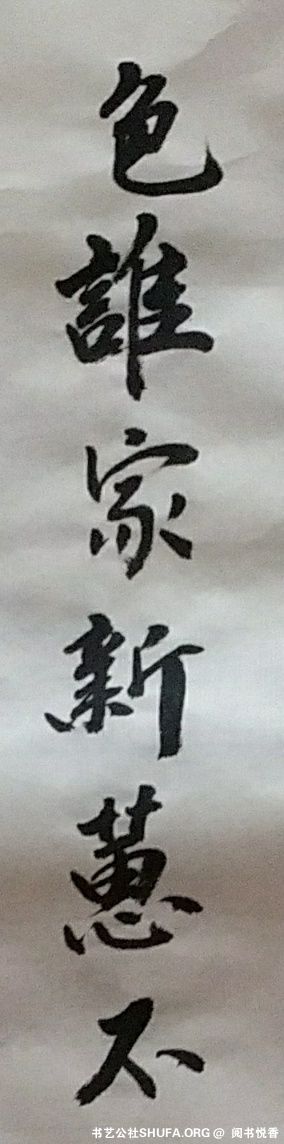 色誰家新蕙不
书艺公社SHUFA.ORG@ 阅书悦香